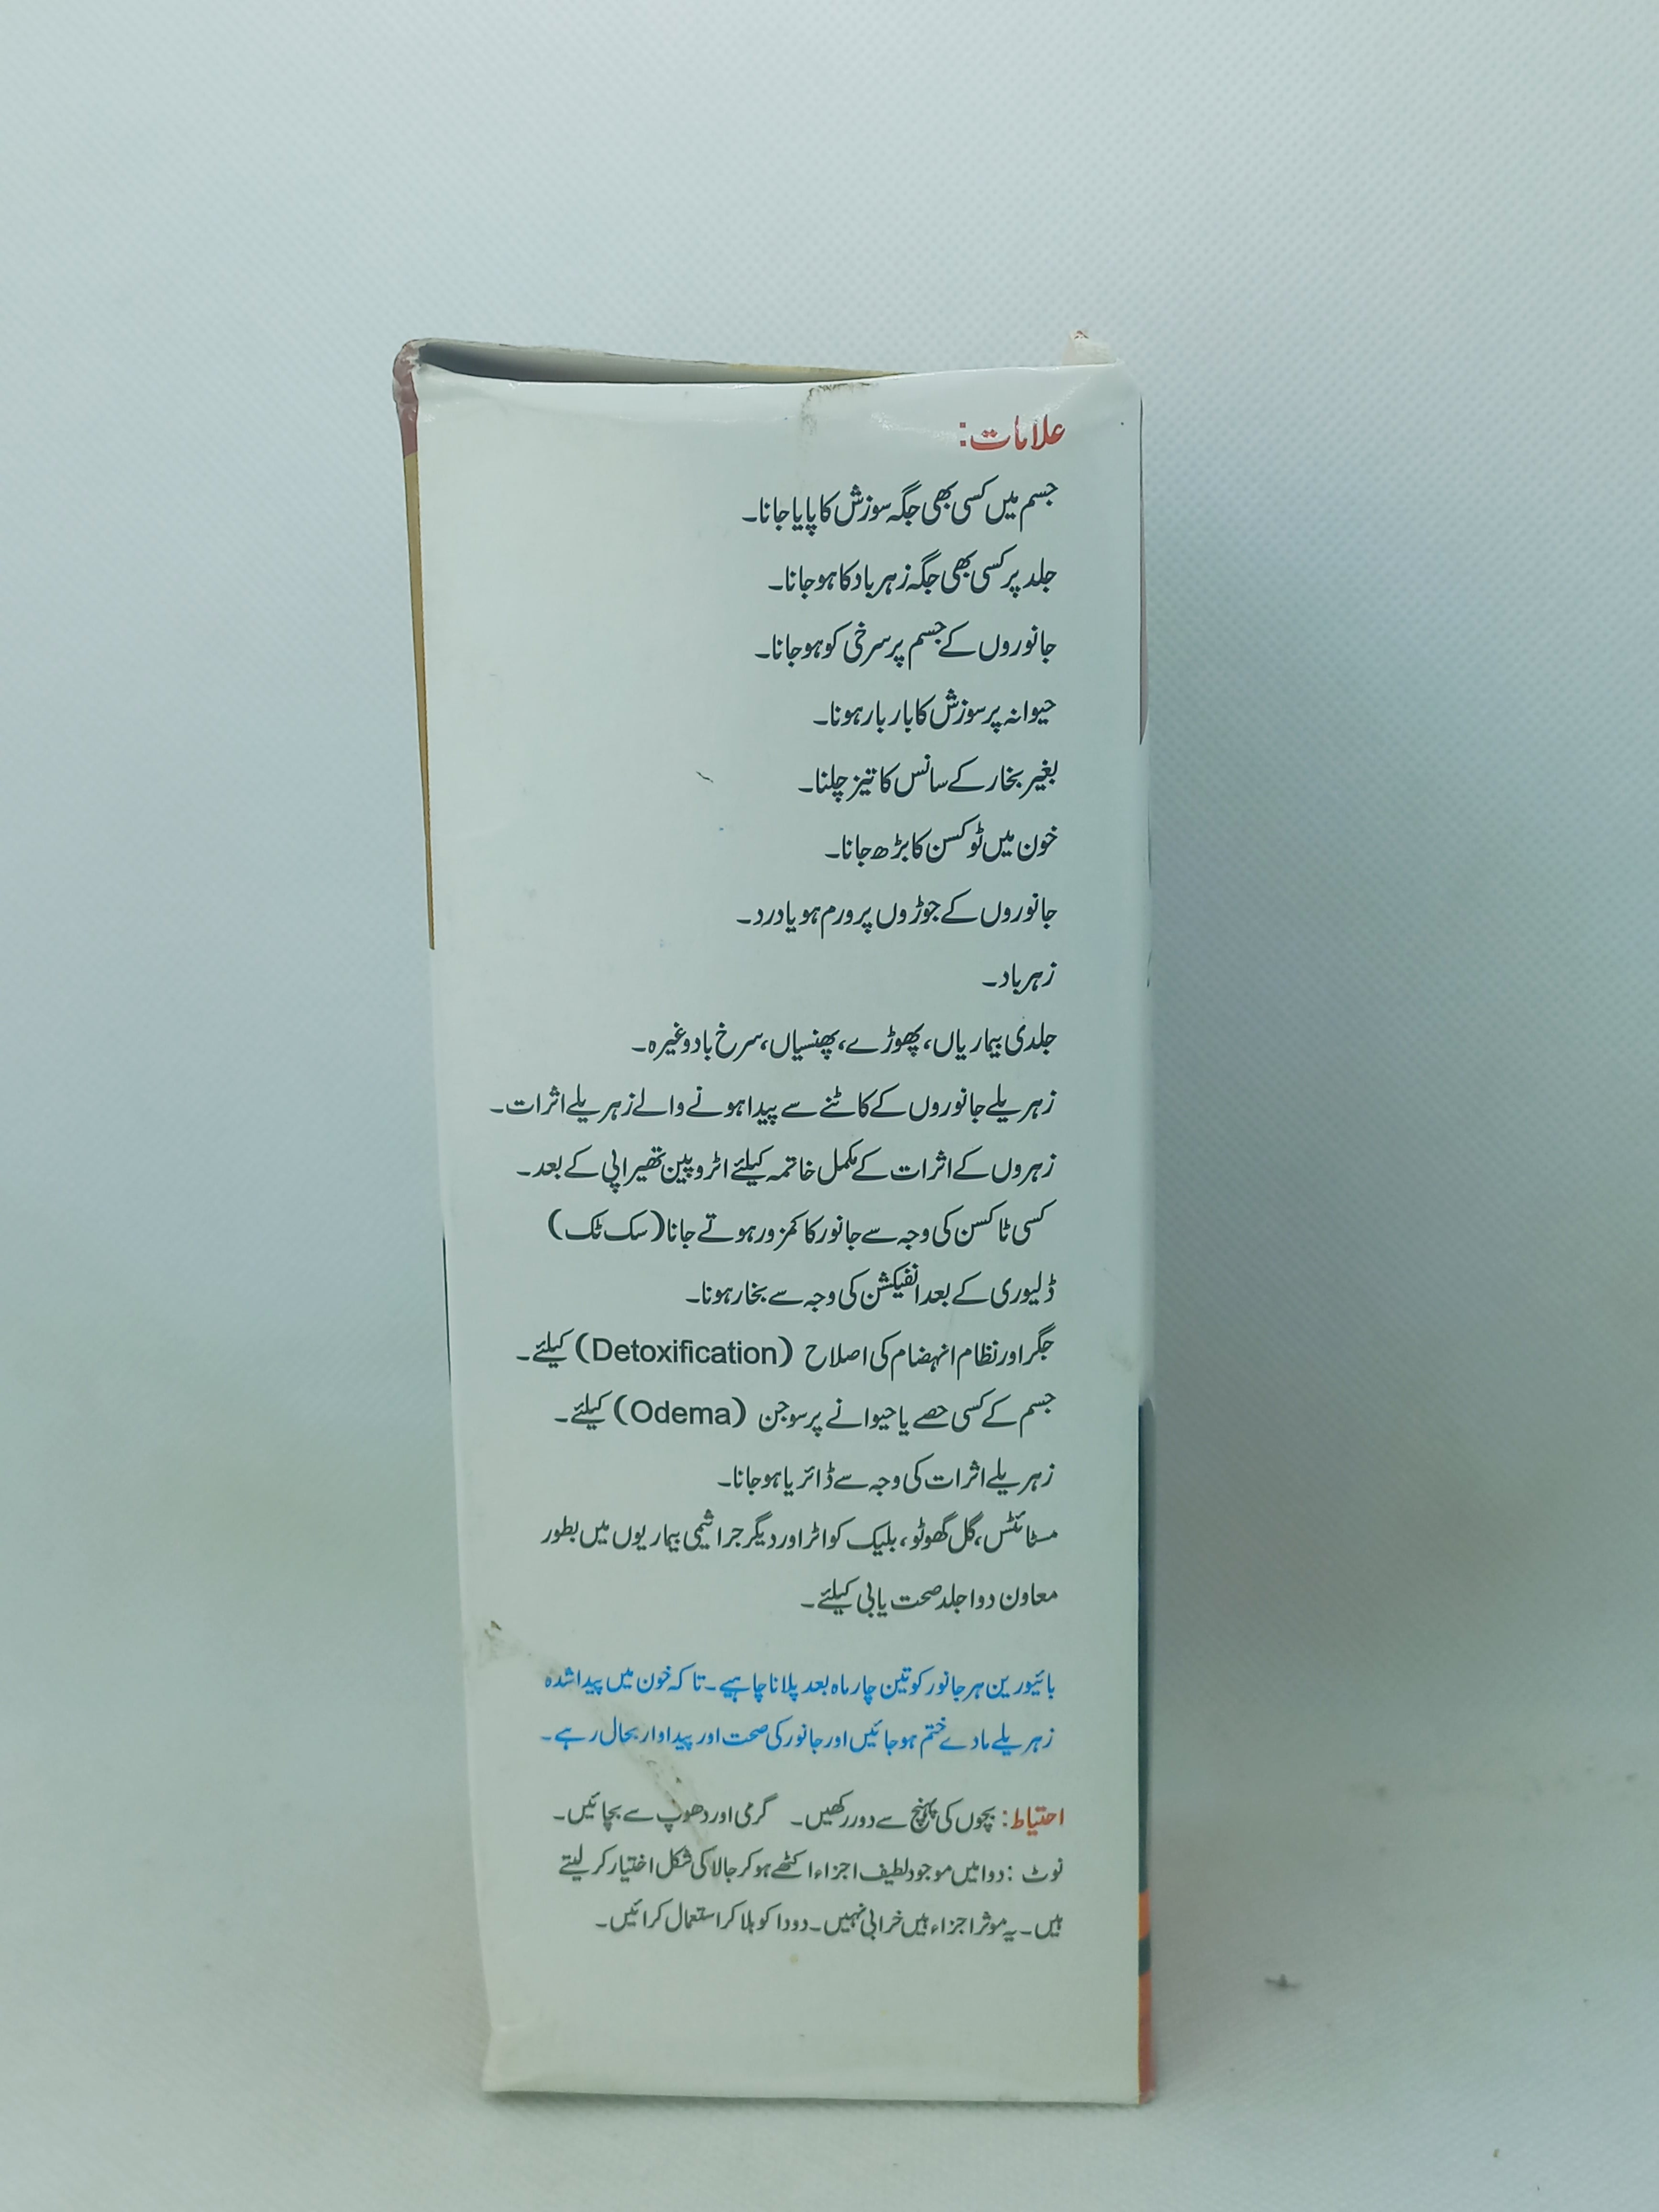 علامات:
جسم میں کسی بھی جگہ سوزش کا پایا جانا۔
جلد پر کسی بھی جگہ زہرباد کا ہو جانا۔
جانوروں کے جسم پر سرخی کو ہو جانا۔
حیوانہ پر سوزش کا بار بار ہونا۔
بغیر بخار کے سانس کا تیز چلنا۔
خون میں ٹوکسن کا بڑھ جانا۔
جانوروں کے جوڑوں پر ورم ہو یا درد۔
زہرباد۔
جلدی بیماریاں، پھوڑے، پھنسیاں، سرخ باد وغیرہ۔
زہریلے جانوروں کے کاٹنے سے پیدا ہونے والے زہریلے اثرات۔
زہروں کے اثرات کے مکمل خاتمہ کیلئے اٹروپین تھیراپی کے بعد۔
کسی ٹاکسن کی وجہ سے جانور کا کمزور ہوتے جانا (سک ٹک)
ڈلیوری کے بعد انفیکشن کی وجہ سے بخار ہونا۔
جگر اور نظام انہضام کی اصلاح (Detoxification) کیلئے۔
جسم کے کسی حصے یا حیوانے پر سوجن (Odema) کیلئے۔
زہریلے اثرات کی وجہ سے ڈائریا ہو جانا۔
مسٹائٹس، گل گھوٹو، بلیک کواٹر اور دیگر جراثیمی بیماریوں میں بطور
معاون دوا جلد صحت یابی کیلئے۔
بائیورین ہر جانور کو تین چار ماہ بعد پلانا چاہیے۔ تاکہ خون میں پیدا شدہ
زہریلے مادے ختم ہو جائیں اور جانور کی صحت اور پیداوار بحال رہے۔
احتیاط: بچوں کی پہنچ سے دور رکھیں۔ گرمی اور دھوپ سے بچائیں۔
نوٹ: دوا میں موجود لطیف اجزاء اکٹھے ہو کر جالا کی شکل اختیار کر لیتے
ہیں۔ یہ موثر اجزاء ہیں خرابی نہیں۔ دودا کو ہلا کر استعمال کرائیں۔